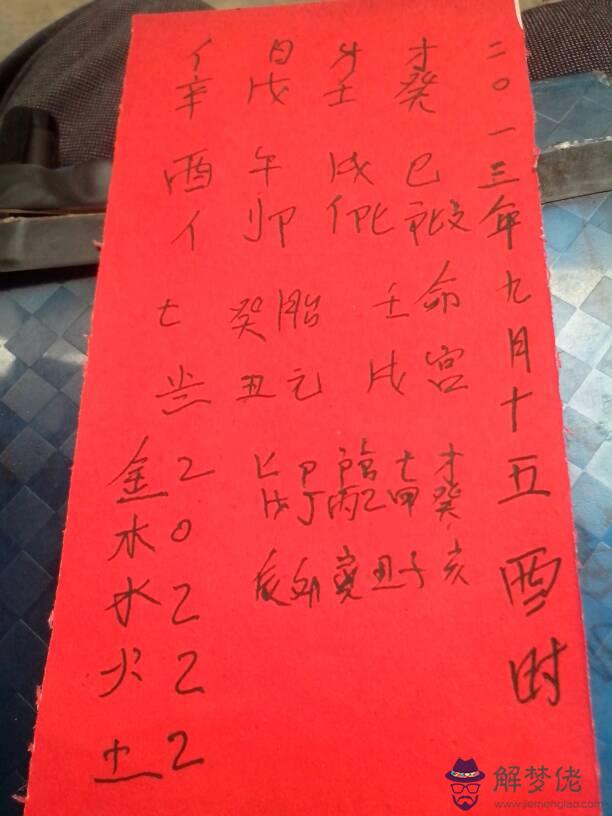 二〇一三年九月十五酉时
才癸巳
壬戌
日戊午
辛酉
命宫
壬戌
胎元
癸丑
癸亥
甲子
乙丑
丙寅
丁卯
戊辰
金2
木0
水2
火2
土2
解梦佬
www.jiemenglao.com